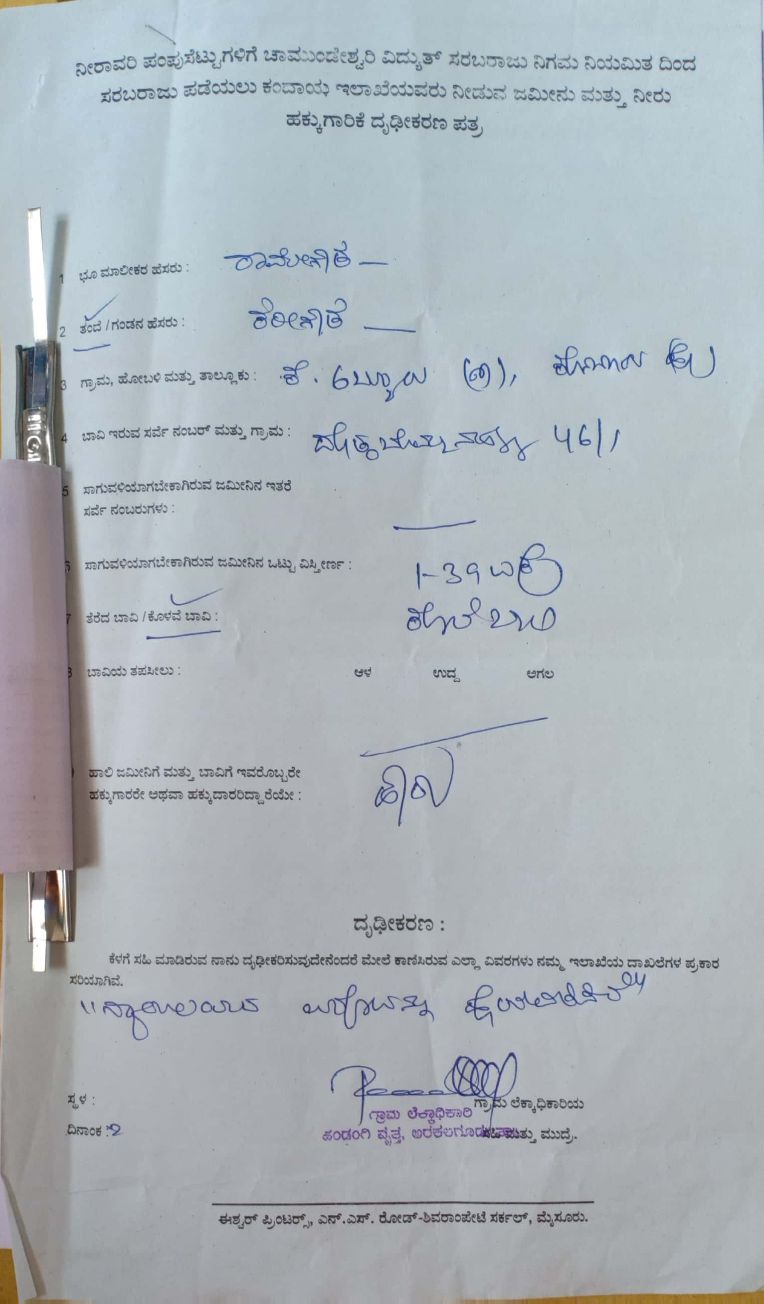 ನೀರಾವರಿ ಪಂಪುಸೆಟ್ಟುಗಳಿಗೆ ಚಾಮುಂಡೇಶ್ವರಿ ವಿದ್ಯುತ್ ಸರಬರಾಜು ನಿಗಮ ನಿಯಮಿತ ದಿಂದ
ಸರಬರಾಜು ಪಡೆಯಲು ಕಂದಾಯ ಇಲಾಖೆಯವರು ನೀಡುವ ಜಮೀನು ಮತ್ತು ನೀರು
ಹಕ್ಕುಗಾರಿಕೆ ದೃಢೀಕರಣ ಪತ್ರ
1 ಭೂ ಮಾಲೀಕರ ಹೆಸರು : ರಾಮೇಗೌಡ
2 ತಂದೆ / ಗಂಡನ ಹೆಸರು :
3 ಗ್ರಾಮ, ಹೋಬಳಿ ಮತ್ತು ತಾಲ್ಲೂಕು :
4 ಬಾವಿ ಇರುವ ಸರ್ವೆ ನಂಬರ್ ಮತ್ತು ಗ್ರಾಮ : 46/1
5 ಸಾಗುವಳಿಯಾಗಬೇಕಾಗಿರುವ ಜಮೀನಿನ ಇತರೆ
ಸರ್ವೆ ನಂಬರುಗಳು :
6 ಸಾಗುವಳಿಯಾಗಬೇಕಾಗಿರುವ ಜಮೀನಿನ ಒಟ್ಟು ವಿಸ್ತೀರ್ಣ : 1-39 ಎಕರೆ
7 ತೆರೆದ ಬಾವಿ / ಕೊಳವೆ ಬಾವಿ : ಕೊಳವೆ ಬಾವಿ
8 ಬಾವಿಯ ತಪಸೀಲು : ಆಳ ಉದ್ದ ಅಗಲ
ಹಾಲಿ ಜಮೀನಿಗೆ ಮತ್ತು ಬಾವಿಗೆ ಇವರೊಬ್ಬರೇ
ಹಕ್ಕುಗಾರರೇ ಅಥವಾ ಹಕ್ಕುದಾರರಿದ್ದಾರೆಯೇ :
ದೃಢೀಕರಣ :
ಕೆಳಗೆ ಸಹಿ ಮಾಡಿರುವ ನಾನು ದೃಢೀಕರಿಸುವುದೇನೆಂದರೆ ಮೇಲೆ ಕಾಣಿಸಿರುವ ಎಲ್ಲಾ ವಿವರಗಳು ನಮ್ಮ ಇಲಾಖೆಯ ದಾಖಲೆಗಳ ಪ್ರಕಾರ
ಸರಿಯಾಗಿವೆ.
ಸ್ಥಳ : ಗ್ರಾಮ ಲೆಕ್ಕಾಧಿಕಾರಿಯ
ಗ್ರಾಮ ಲೆಕ್ಕಾಧಿಕಾರಿ
ದಿನಾಂಕ : ಸಹಿ ಮತ್ತು ಮುದ್ರೆ.
ಪಂಡಂಗಿ ವೃತ್ತ, ಅರಕಲಗೂಡು
ಈಶ್ವರ್ ಪ್ರಿಂಟರ್ಸ್, ಎನ್.ಎಸ್. ರೋಡ್-ಶಿವರಾಂಪೇಟೆ ಸರ್ಕಲ್, ಮೈಸೂರು.